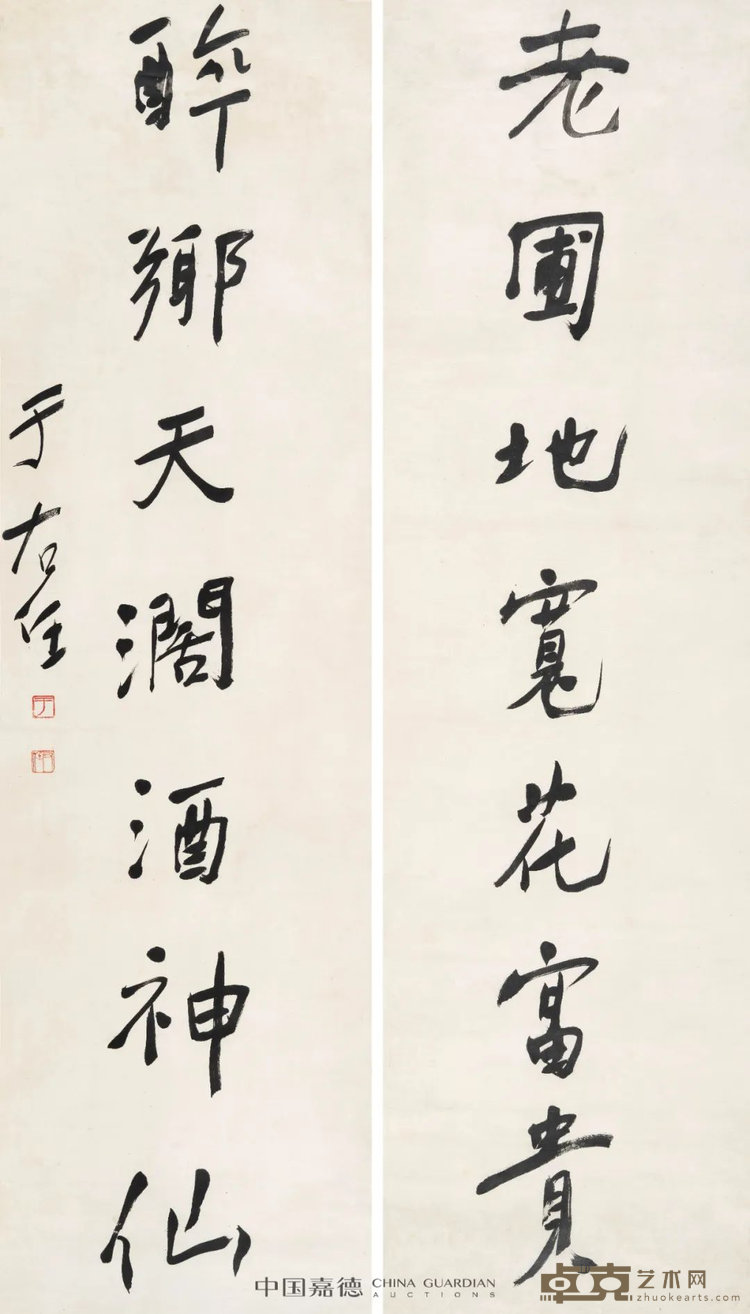 老圃地寬花富貴
醉鄉天濶酒神仙
于右任
中国嘉德 CHINA GUARDIAN AUCTIONS
卓克艺术网
zhuokearts.com